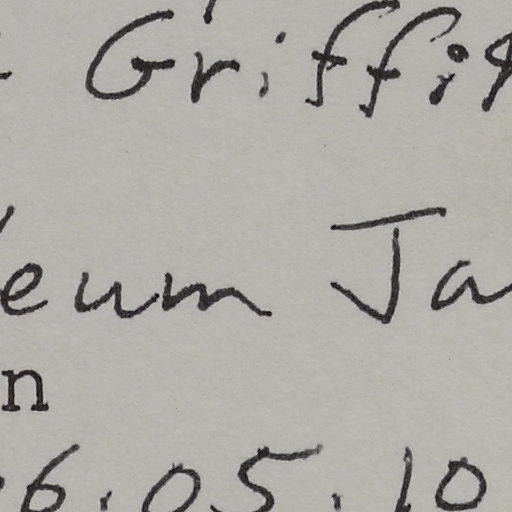 Griffi
eum Ja
n
6.05.10